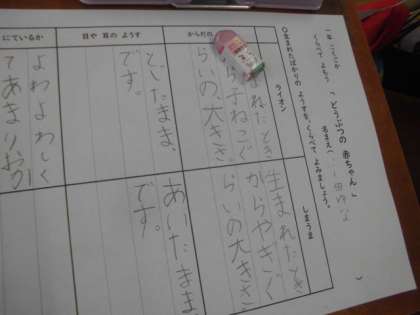 一年 こくごか
くらべて よもう 「どうぶつの 赤ちゃん」
名まえへ
○生まれたばかりの ようすを、くらべて よみましょう。
ライオン
しまうま
からだの
まれたとき
ら子ねこぐ
らいの大きさ
生まれたとき
からやぎぐ
らいの大きさ
目や 耳の ようす
とじたまま、
です。
あいたまま
です。
にているか
よわよわしく
てあまり